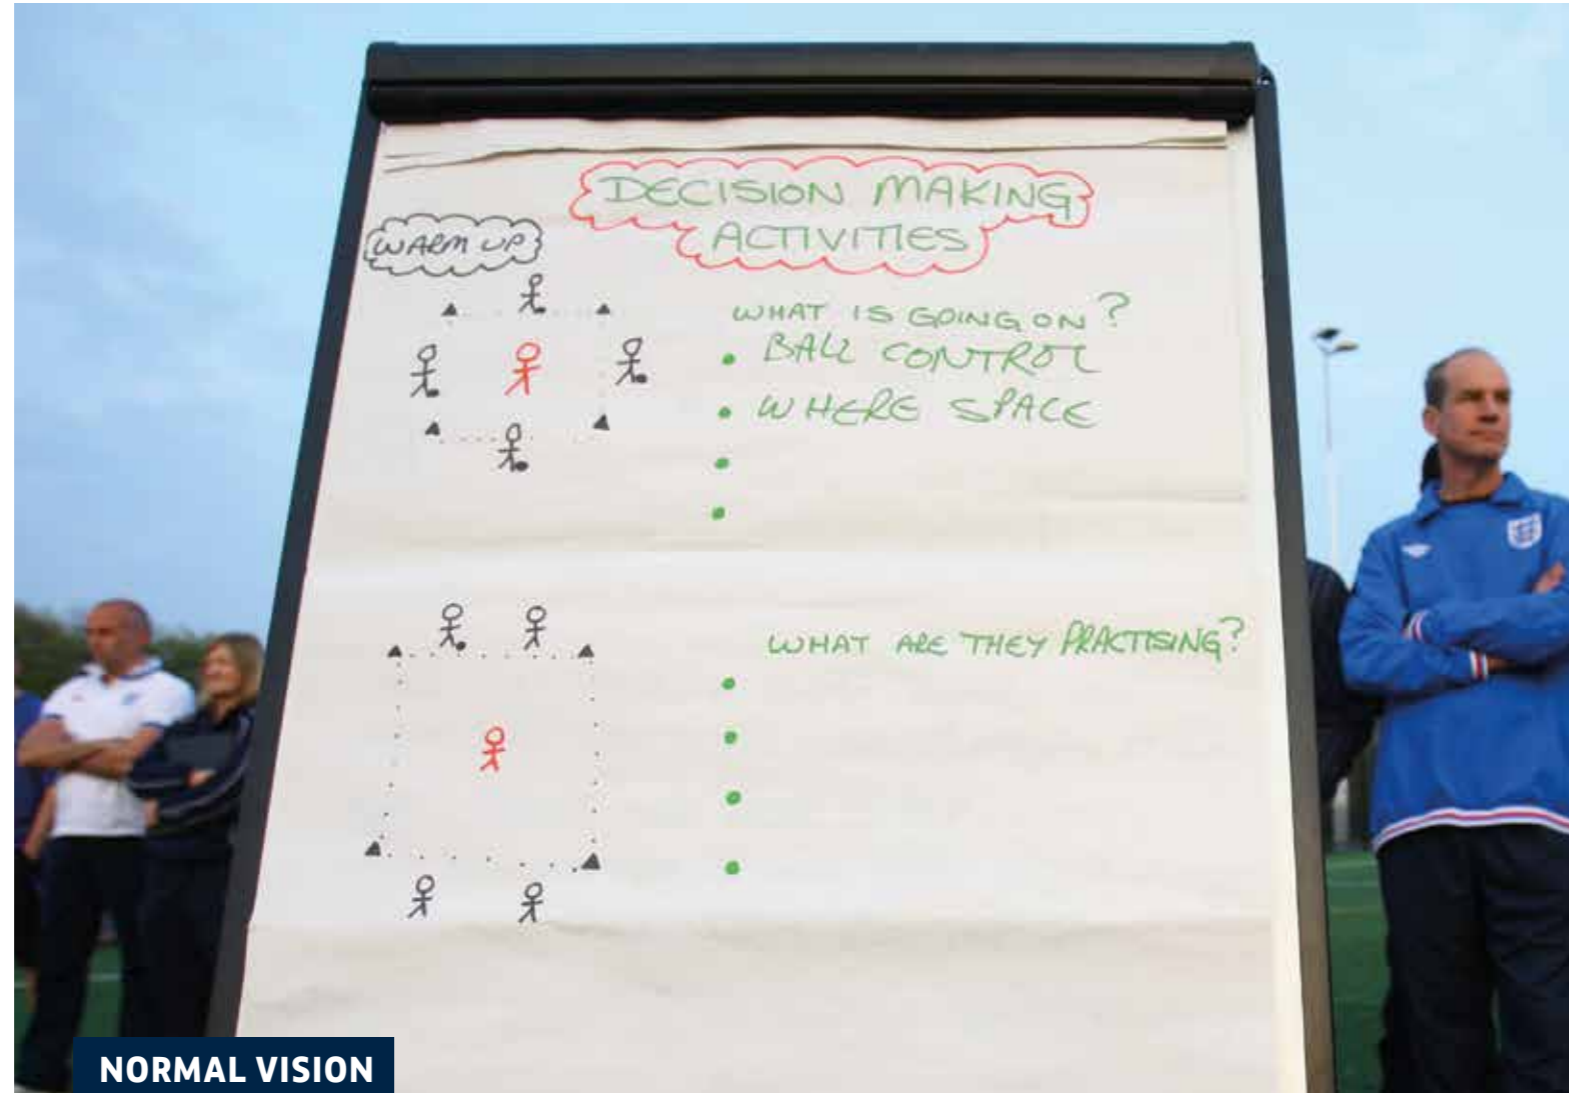 DECISION MAKING
ACTIVITIES
WARM UP
WHAT IS GOING ON?
• BALL CONTROL
• WHERE SPACE
•
•
WHAT ARE THEY PRACTISING?
•
•
•
•
NORMAL VISION